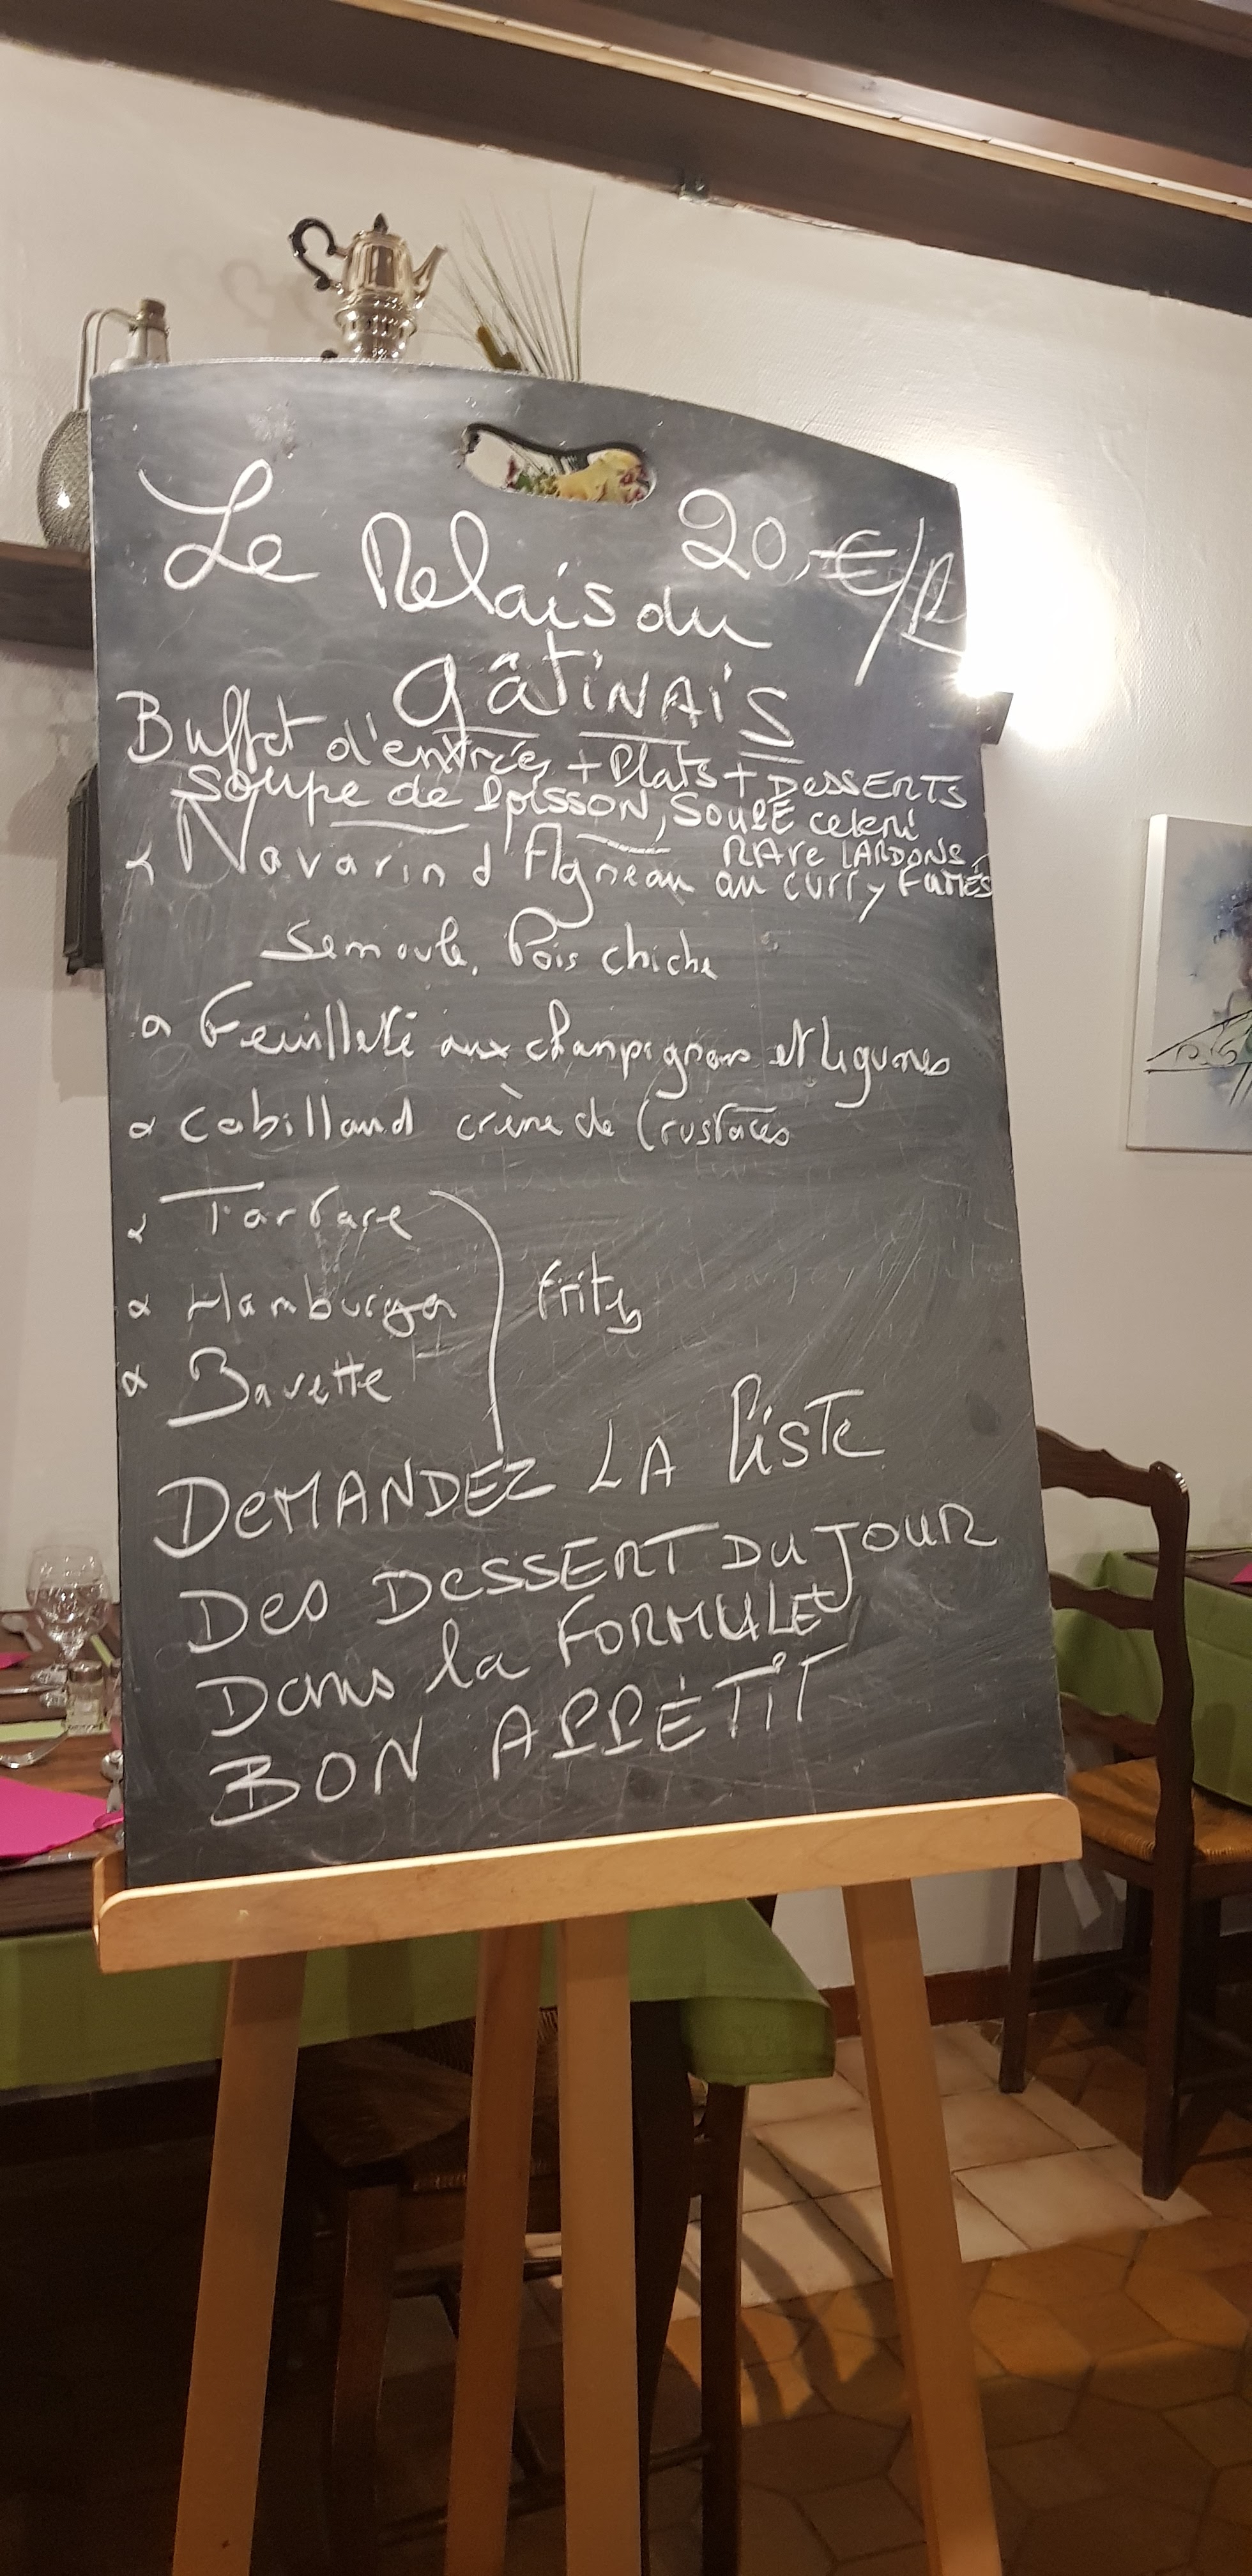 Le Relais du
20,-€/P
gâTiNAiS
Buffet d'entrée + Plats + DeSSERTS
Soupe de PoisSON, SOUPE celeri
RAve LARDONS,
Navarin d'Agneau au curry FuMÉS
Semoule, Pois chiche
Feuilleté aux champignons et légumes
Cabillaud crème de Crustacés
Tartare
Hamburger
Frites
Bavette
DeMANDEZ LA LiSTE
Des DeSSERT DU JOUR
Dans la FORMULE
BON APPÉTiT